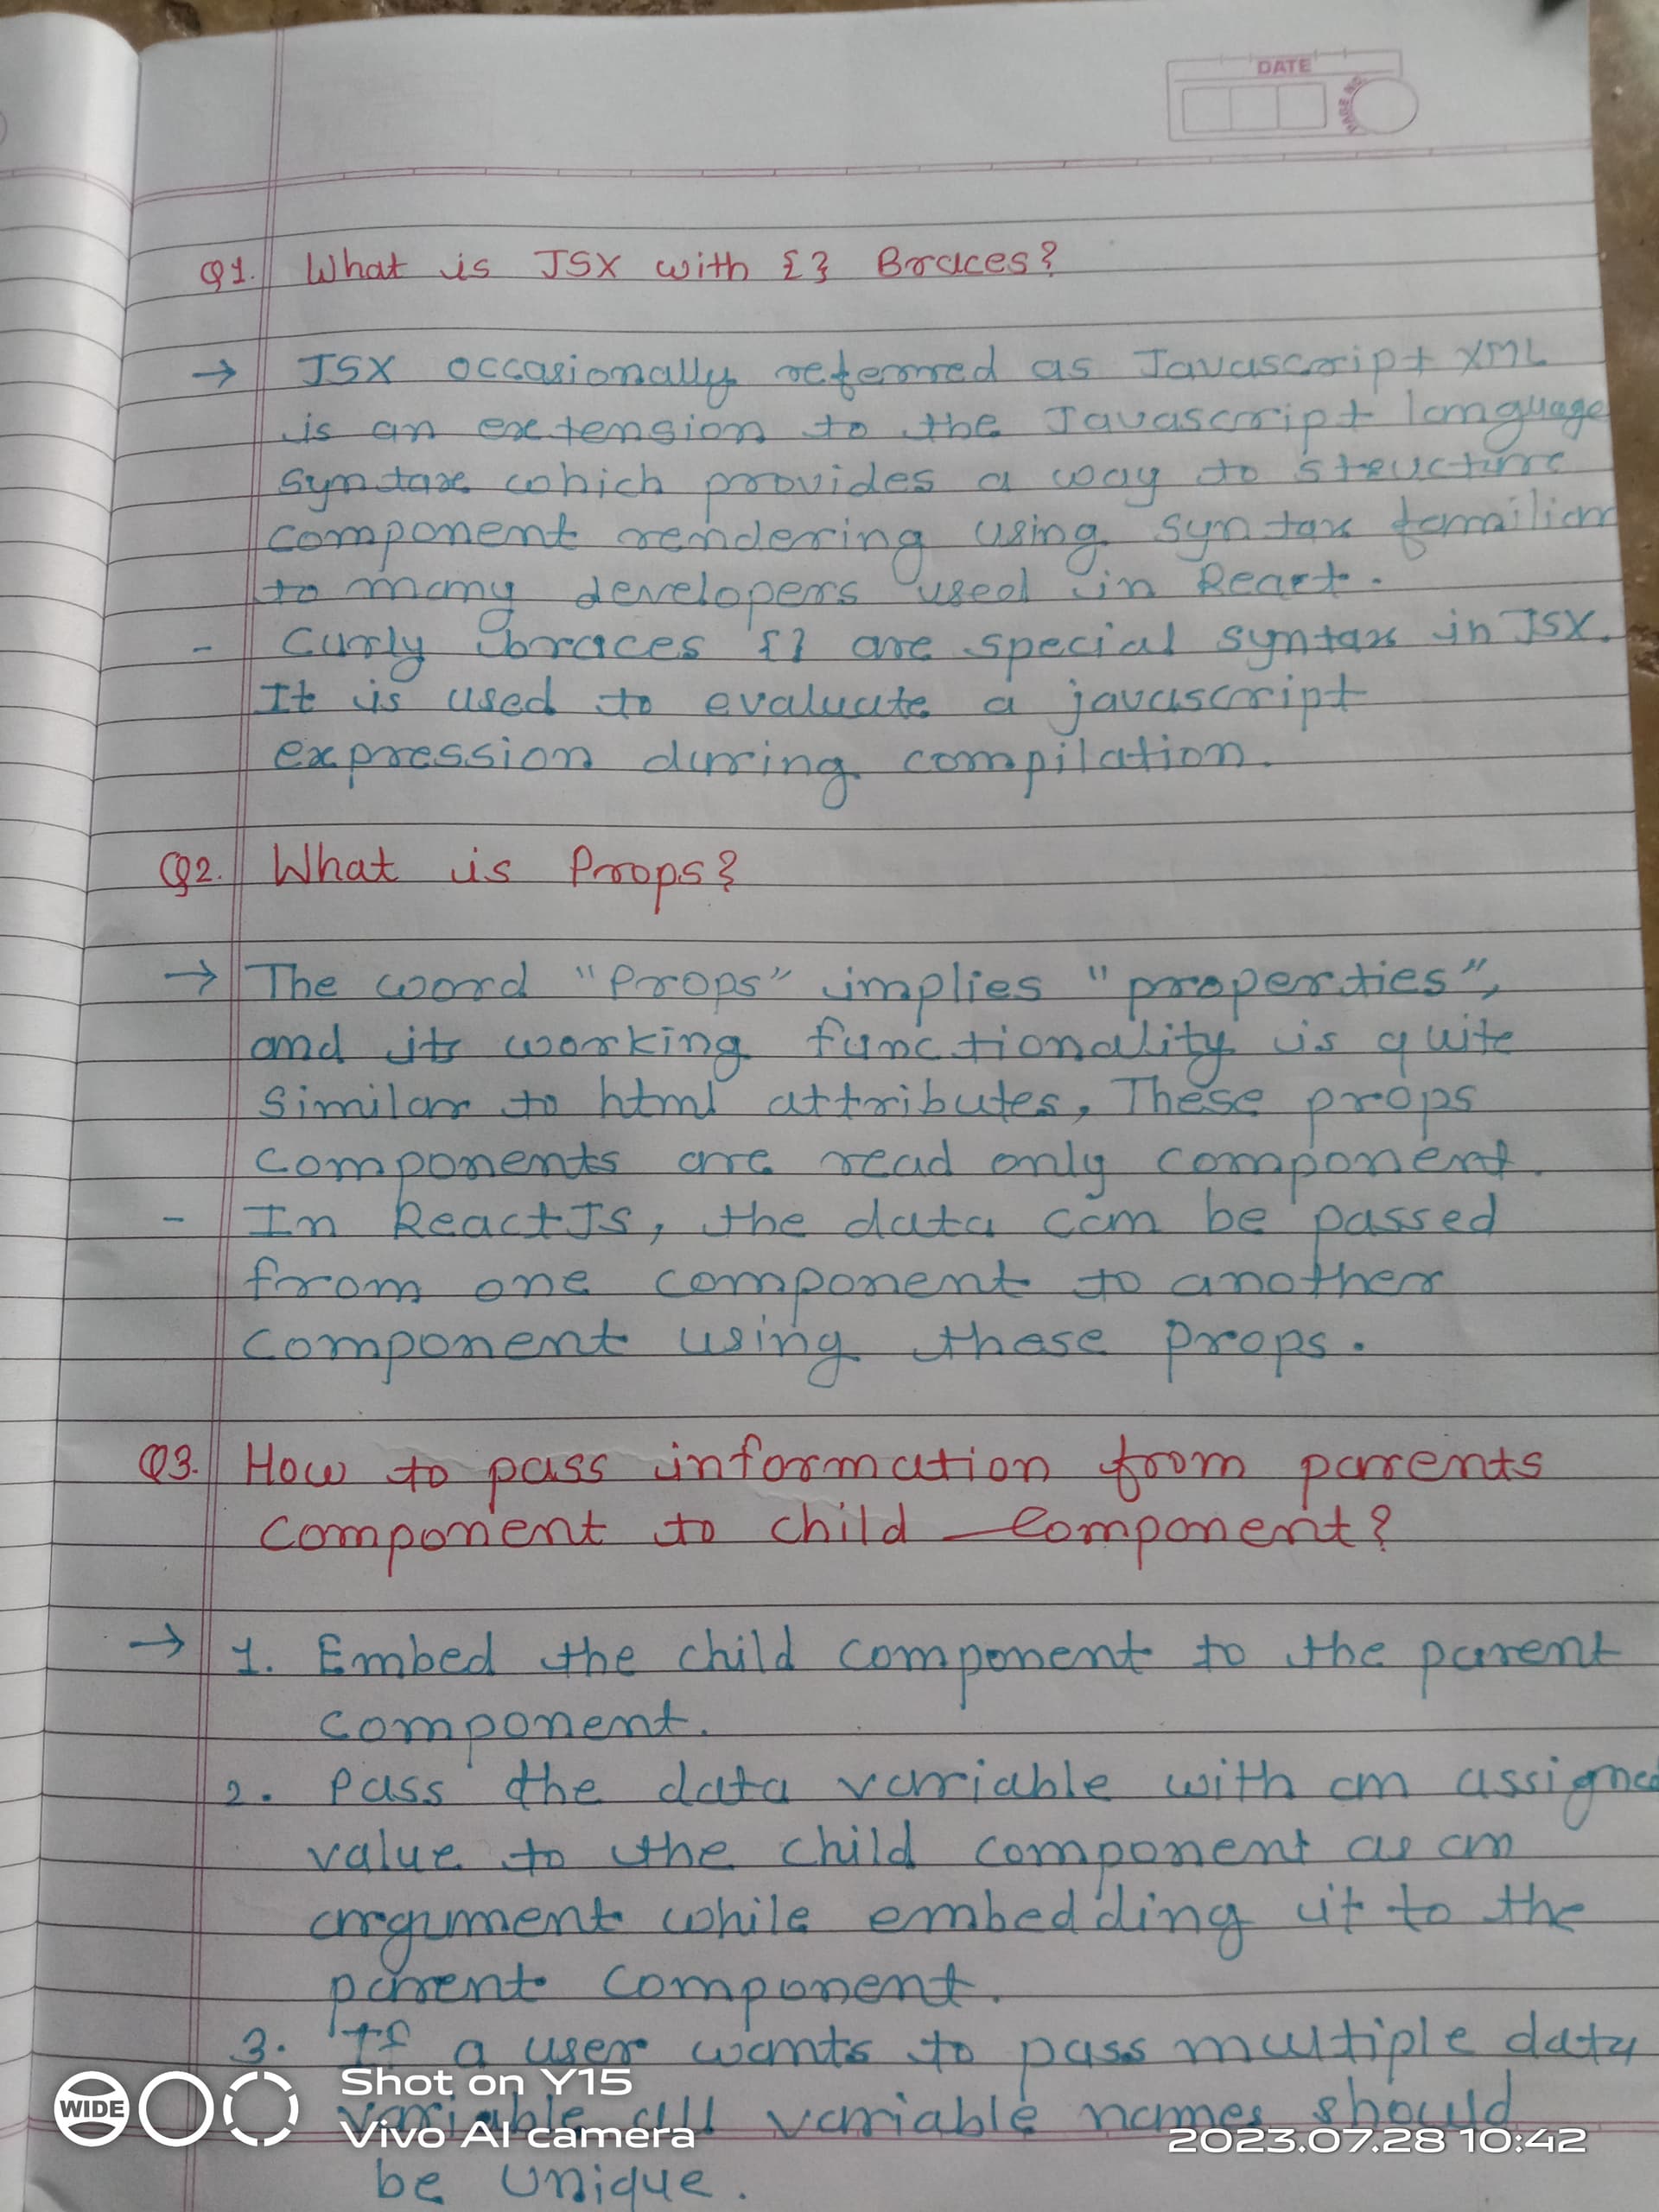 DATE
PAGE NO.
Q1. What is JSX with {} Braces?
→ JSX occasionally referred as Javascript XML
is an extension to the Javascript language
syntax which provides a way to structure
component rendering using syntax familiar
to many developers used in React.
- Curly braces {} are special syntax in JSX.
It is used to evaluate a javascript
expression during compilation.
Q2. What is Props?
→ The word "Props" implies "properties",
and its working functionality is quite
similar to html attributes, These props
components are read only component.
- In ReactJS, the data can be passed
from one component to another
component using these props.
Q3. How to pass information from parents
component to child component?
→ 1. Embed the child component to the parent
component.
2. Pass the data variable with an assigned
value to the child component as an
argument while embedding it to the
parent component.
3. If a user wants to pass multiple data
variable all variable names should
be unique.
WIDE
Shot on Y15
Vivo AI camera
2023.07.28 10:42